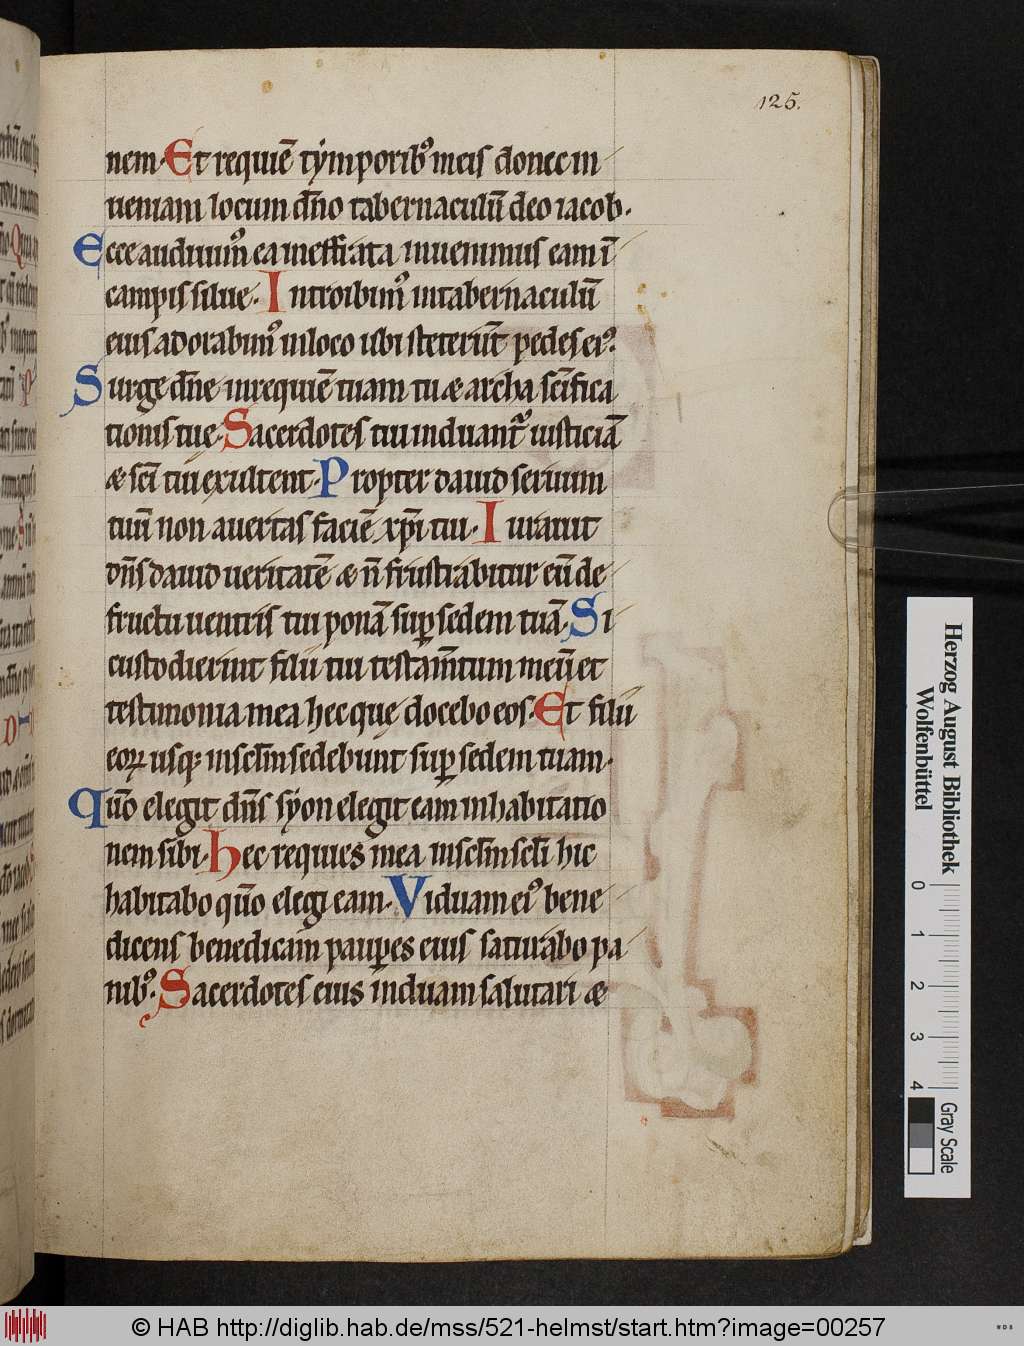 125.
nem. Et requiē tẏmporibꝰ meis donec in
ueniam locum dn̄o tabernaculū deo iacob.
Ecce audiuimꝰ ea in effrata inuenimus eam ī
campis silue. Introibimꝰ in tabernaculū
eius adorabimꝰ in loco ubi steterūt pedes eiꝰ.
Surge dn̄e in requiē tuam tu & archa sc̄ifica
tionis tue. Sacerdotes tui induant᷑ iusticiā
& sc̄i tui exultent. Propter dauid seruum
tuū non auertas faciē xp̄i tui. Iurauit
dn̄s dauid ueritatē & n̄ frustrabitur eū de
fructu uentris tui ponā suꝑ sedem tuā. Si
custodierint filii tui testam̄tum meū et
testimonia mea hec quę docebo eos. Et filii
eoꝝ usqꝫ in sc̄lm sedebunt suꝑ sedem tuam.
Qūo elegit dn̄s sẏon elegit eam in habitatio
nem sibi. Hec requies mea in sc̄lm sc̄li hic
habitabo qūo elegi eam. Viduam eiꝰ bene
dicens benedicam pauꝑes eius saturabo pa
nibꝰ. Sacerdotes eius induam salutari &
Herzog August Bibliothek
Wolfenbüttel
0 1 2 3 4
Gray Scale
© HAB http://diglib.hab.de/mss/521-helmst/start.htm?image=00257